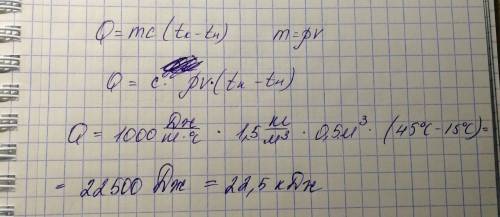 Q = mc (tк - tн) m = ρv
Q = c · ρv · (tк - tн)
Q = 1000 Дж/m·ч · 1,5 кг/м³ · 0,5м³ · (45°C - 15°C) =
= 22500 Дж = 22,5 кДж